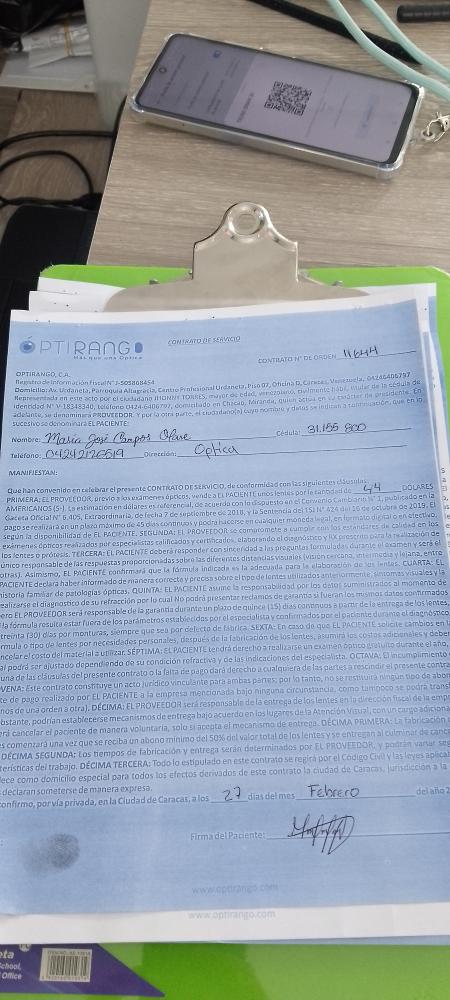 OPTIRANGO
Más que una Óptica
CONTRATO DE SERVICIO
CONTRATO N° DE ORDEN 11644
OPTIRANGO, C.A.
Registro de Información Fiscal N° J-505868454
Domicilio: Av. Urdaneta, Parroquia Altagracia, Centro Profesional Urdaneta, Piso 07, Oficina D, Caracas, Venezuela, 04246406797
Representada en este acto por el ciudadano JHONNY TORRES, mayor de edad, venezolano, civilmente hábil, titular de la cédula de
Identidad N° V-18348340, teléfono 0424-6406797, domiciliado en Chacao, Miranda, quien actúa en su carácter de presidente. En
adelante, se denominará PROVEEDOR. Y por la otra parte, el ciudadano(a) cuyo nombre y datos se indican a continuación, que en lo
sucesivo se denominará EL PACIENTE:
Nombre: María José Campos Cédula: 31.155 800
Teléfono: 04242120519 Dirección: Optica
MANIFIESTAN:
Que han convenido en celebrar el presente CONTRATO DE SERVICIO, de conformidad con las siguientes cláusulas:
PRIMERA: EL PROVEEDOR, previo a los exámenes ópticos, vende a EL PACIENTE unos lentes por la cantidad de 44 DÓLARES
AMERICANOS ($-). La estimación en dólares es referencial, de acuerdo con lo dispuesto en el Convenio Cambiario N° 1, publicado en la
Gaceta Oficial N° 6.405, Extraordinaria, de fecha 7 de septiembre de 2018, y la Sentencia del TSJ N° 424 del 16 de octubre de 2019. El
pago se realizará en un plazo máximo de 45 días continuos y podrá hacerse en cualquier moneda legal, en formato digital o en efectivo,
según la disponibilidad de EL PACIENTE. SEGUNDA: EL PROVEEDOR se compromete a cumplir con los estándares de calidad en los
exámenes ópticos realizados por especialistas calificados y certificados, elaborando el diagnóstico y RX descrito para la realización de
los lentes o prótesis. TERCERA: EL PACIENTE deberá responder con sinceridad a las preguntas formuladas durante el examen y será el
único responsable de las respuestas proporcionadas sobre las diferentes distancias visuales (visión cercana, intermedia y lejana, entre
otras). Asimismo, EL PACIENTE confirmará que la fórmula indicada es la adecuada para la elaboración de los lentes. CUARTA: EL
PACIENTE declara haber informado de manera correcta y precisa sobre el tipo de lentes utilizados anteriormente, síntomas visuales y la
historia familiar de patologías ópticas. QUINTA: EL PACIENTE asume la responsabilidad por los datos suministrados al momento de
realizarse el diagnóstico de su refracción por lo cual No podrá presentar reclamos de garantía si fueran los mismos datos confirmados
pero EL PROVEEDOR será responsable de la garantía durante un plazo de quince (15) días continuos a partir de la entrega de los lentes,
la fórmula resulta estar fuera de los parámetros establecidos por el especialista y confirmados por el paciente durante el diagnóstico
treinta (30) días por monturas, siempre que sea por defecto de fábrica. SEXTA: En caso de que EL PACIENTE solicite cambios en
fórmula o tipo de lentes por necesidades personales, después de la fabricación de los lentes, asumirá los costos adicionales y deberá
cancelar el costo del material a utilizar. SÉPTIMA: EL PACIENTE tendrá derecho a realizarse un examen óptico gratuito durante el año,
al podrá ser ajustado dependiendo de su condición refractiva y de las indicaciones del especialista. OCTAVA. El incumplimiento
una de las cláusulas del presente contrato o la falta de pago dará derecho a cualquiera de las partes a rescindir el presente contrato
NOVENA: Este contrato constituye un acto jurídico vinculante para ambas partes; por lo tanto, no se restituirá ningún tipo de abono
de pago realizado por EL PACIENTE a la empresa mencionada bajo ninguna circunstancia, como tampoco se podrá transferir
nos de una orden a otra). DÉCIMA: EL PROVEEDOR será responsable de la entrega de los lentes en la dirección fiscal de la empresa
obstante, podrían establecerse mecanismos de entrega bajo acuerdo en los lugares de la Atención Visual, con un cargo adicional
erá cancelar el paciente de manera voluntaria, solo si acepta el mecanismo de entrega. DÉCIMA PRIMERA: La fabricación
s comenzará una vez que se reciba un abono mínimo del 50% del valor total de los lentes y se entregan al culminar de cancelar
DÉCIMA SEGUNDA: Los tiempos de fabricación y entrega serán determinados por EL PROVEEDOR, y podrán variar según
terísticas del trabajo. DÉCIMA TERCERA: Todo lo estipulado en este contrato se regirá por el Código Civil y las leyes aplicables
lece como domicilio especial para todos los efectos derivados de este contrato la ciudad de Caracas, jurisdicción a la
declaran someterse de manera expresa.
confirmo, por vía privada, en la Ciudad de Caracas, a los 27 días del mes Febrero del año 2
Firma del Paciente:
www.optirango.com
www.optirango.com
eta
School,
Office